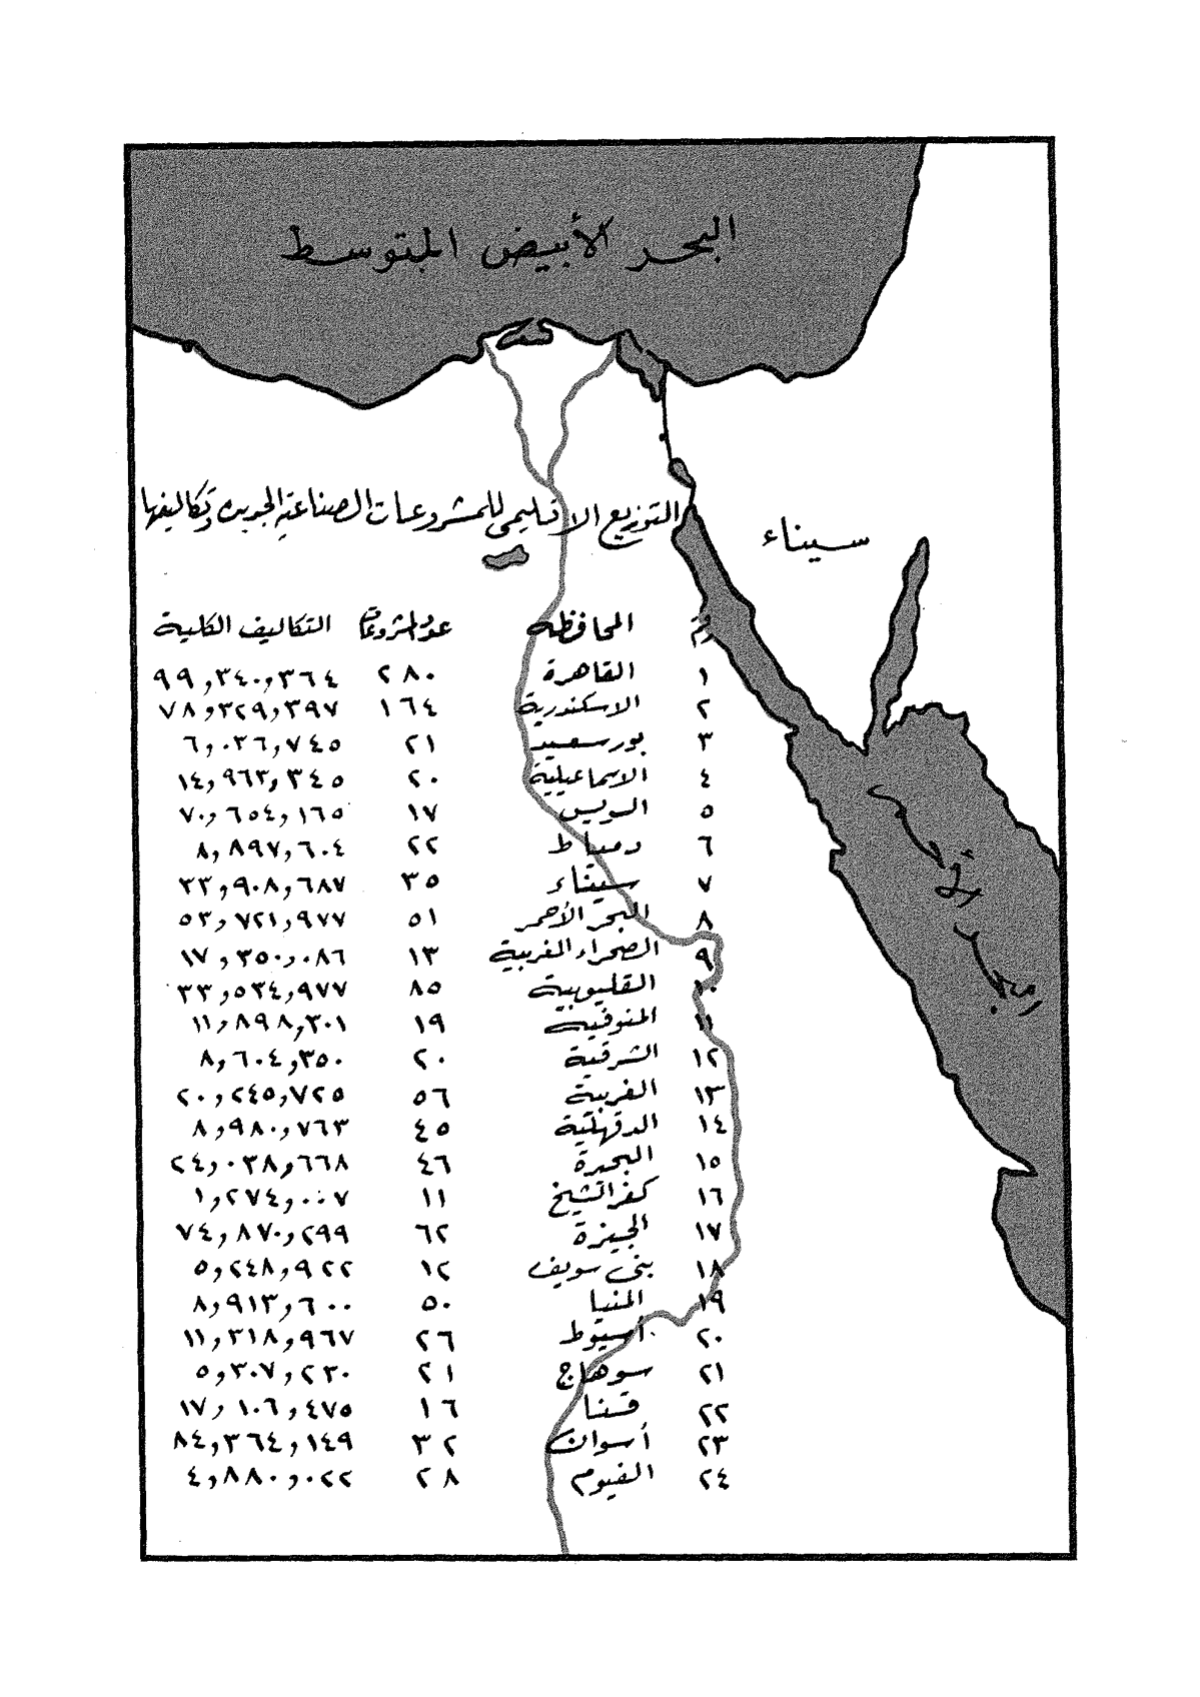 البحر الأبيض المتوسط
التوزيع الاقليمى للمشروعات الصناعية الجديده وتكاليفها
سيناء
رقم المحافظه عدد المشروعات التكاليف الكلية
١ القاهرة ٢٨٠ ٩٩,٣٤٠,٣٦٤
٢ الاسكندرية ١٦٤ ٧٨,٣٢٩,٣٩٧
٣ بورسعيد ٢١ ٦,٠٣٦,٧٤٥
٤ الاسماعيلية ٢٠ ١٤,٩٦٣,٣٤٥
٥ السويس ١٧ ٧٠,٦٥٤,١٦٥
٦ دمياط ٢٢ ٨,٨٩٧,٦٠٤
٧ سيناء ٣٥ ٣٣,٩٠٨,٦٨٧
٨ البحر الأحمر ٥١ ٥٣,٧٢١,٩٧٧
٩ الصحراء الغربية ١٣ ١٧,٣٥٠,٠٨٦
١٠ القليوبية ٨٥ ٣٣,٥٣٤,٩٧٧
١١ المنوفيه ١٩ ١١,٨٩٨,٣٠١
١٢ الشرقية ٢٠ ٨,٦٠٤,٣٥٠
١٣ الغربية ٥٦ ٢٠,٢٤٥,٧٢٥
١٤ الدقهلية ٤٥ ٨,٩٨٠,٧٦٣
١٥ البحيرة ٤٦ ٢٤,٠٣٨,٦٦٨
١٦ كفر الشيخ ١١ ١,٢٧٤,٠٠٧
١٧ الجيزة ٦٢ ٧٤,٨٧٠,٢٩٩
١٨ بنى سويف ١٢ ٥,٢٤٨,٩٢٢
١٩ المنيا ٥٠ ٨,٩١٣,٦٠٠
٢٠ أسيوط ٢٦ ١١,٣١٨,٩٦٧
٢١ سوهاج ٢١ ٥,٣٠٧,٢٣٠
٢٢ قنا ١٦ ١٧,١٠٦,٤٧٥
٢٣ أسوان ٣٢ ٨٤,٣٦٤,١٤٩
٢٤ الفيوم ٢٨ ٤,٨٨٠,٠٢٢
البحر الأحمر